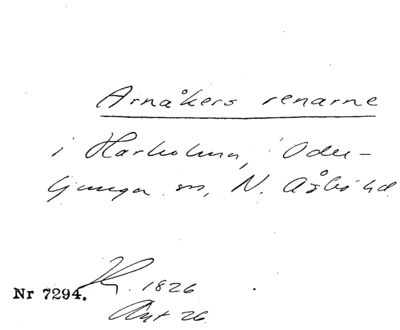 Arnåkers renarne
i Harholma, Oder-
ljunga sn, N. Åsbo hd.
Nr 7294. 1826
Akt 26